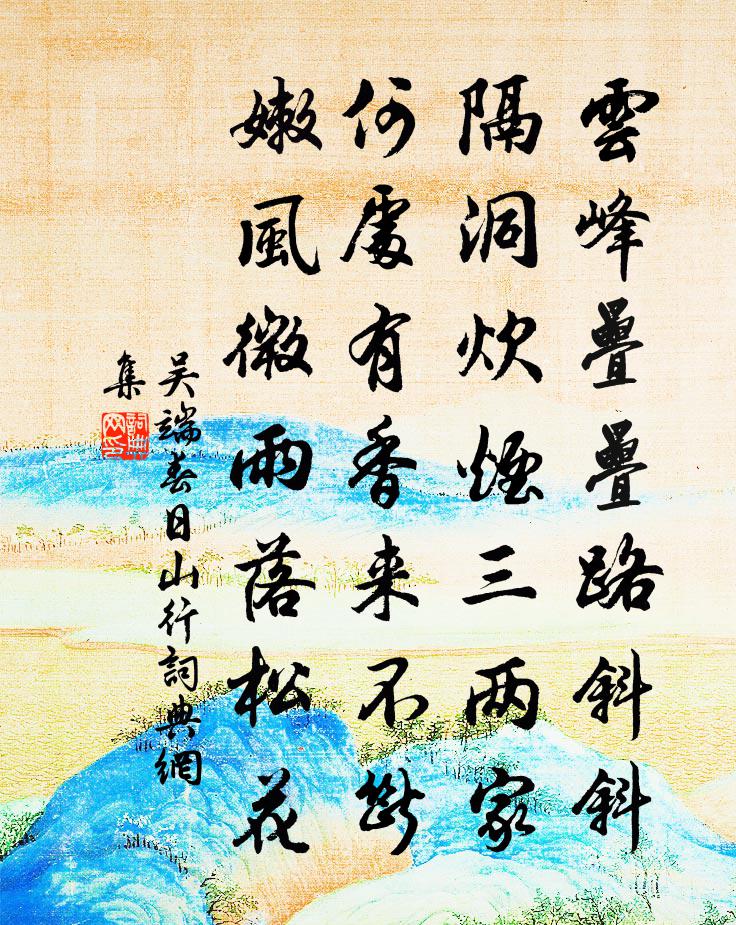 雲峰疊疊路斜斜
隔洞炊煙三两家
何處有香来不斷
嫩風微雨落松花
吴端春日山行詞典網
集
詞典
网